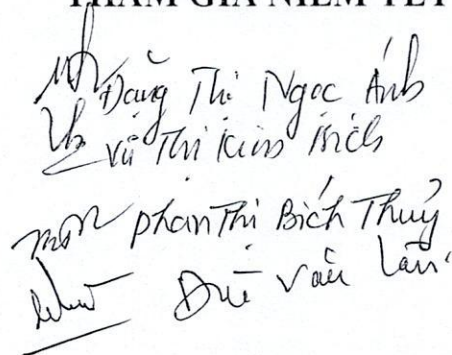 THAM GIA NIÊM YẾT
Đặng Thị Ngọc Ánh
Vũ Thị Kim Bích
Phan Thị Bích Thuỷ
Văn